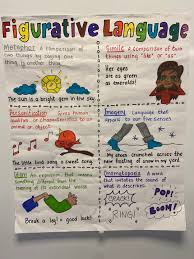 Figurative Language
Metaphor: A comparison of
two things by saying one
thing is another thing
The sun is a bright gem in the sky.
Simile: A comparison of two
things using "like" or "as"
Her eyes
are as
green as
emeralds!
Personification: Gives human
qualities or characteristics to an
animal or object
The little bird sang a sweet song.
Imagery: Language that
appeals to our five senses
My shoes crunched across the
new fondling of snow in my yard.
Idiom: An expression that means
something different from the
meaning of its individual words
Break a leg! = good luck!
Onomatopoeia: A word
that imitates the sound
of what it describes.
CRACK!
RING!
POP!
BOOM!